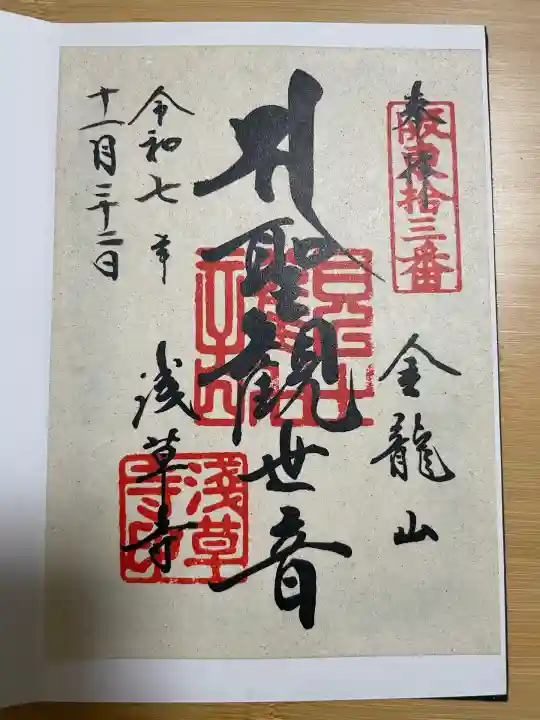 奉拝
阪東拾三番
金龍山
聖観世音
浅草寺
淺草寺印
令和七年
十一月二十二日